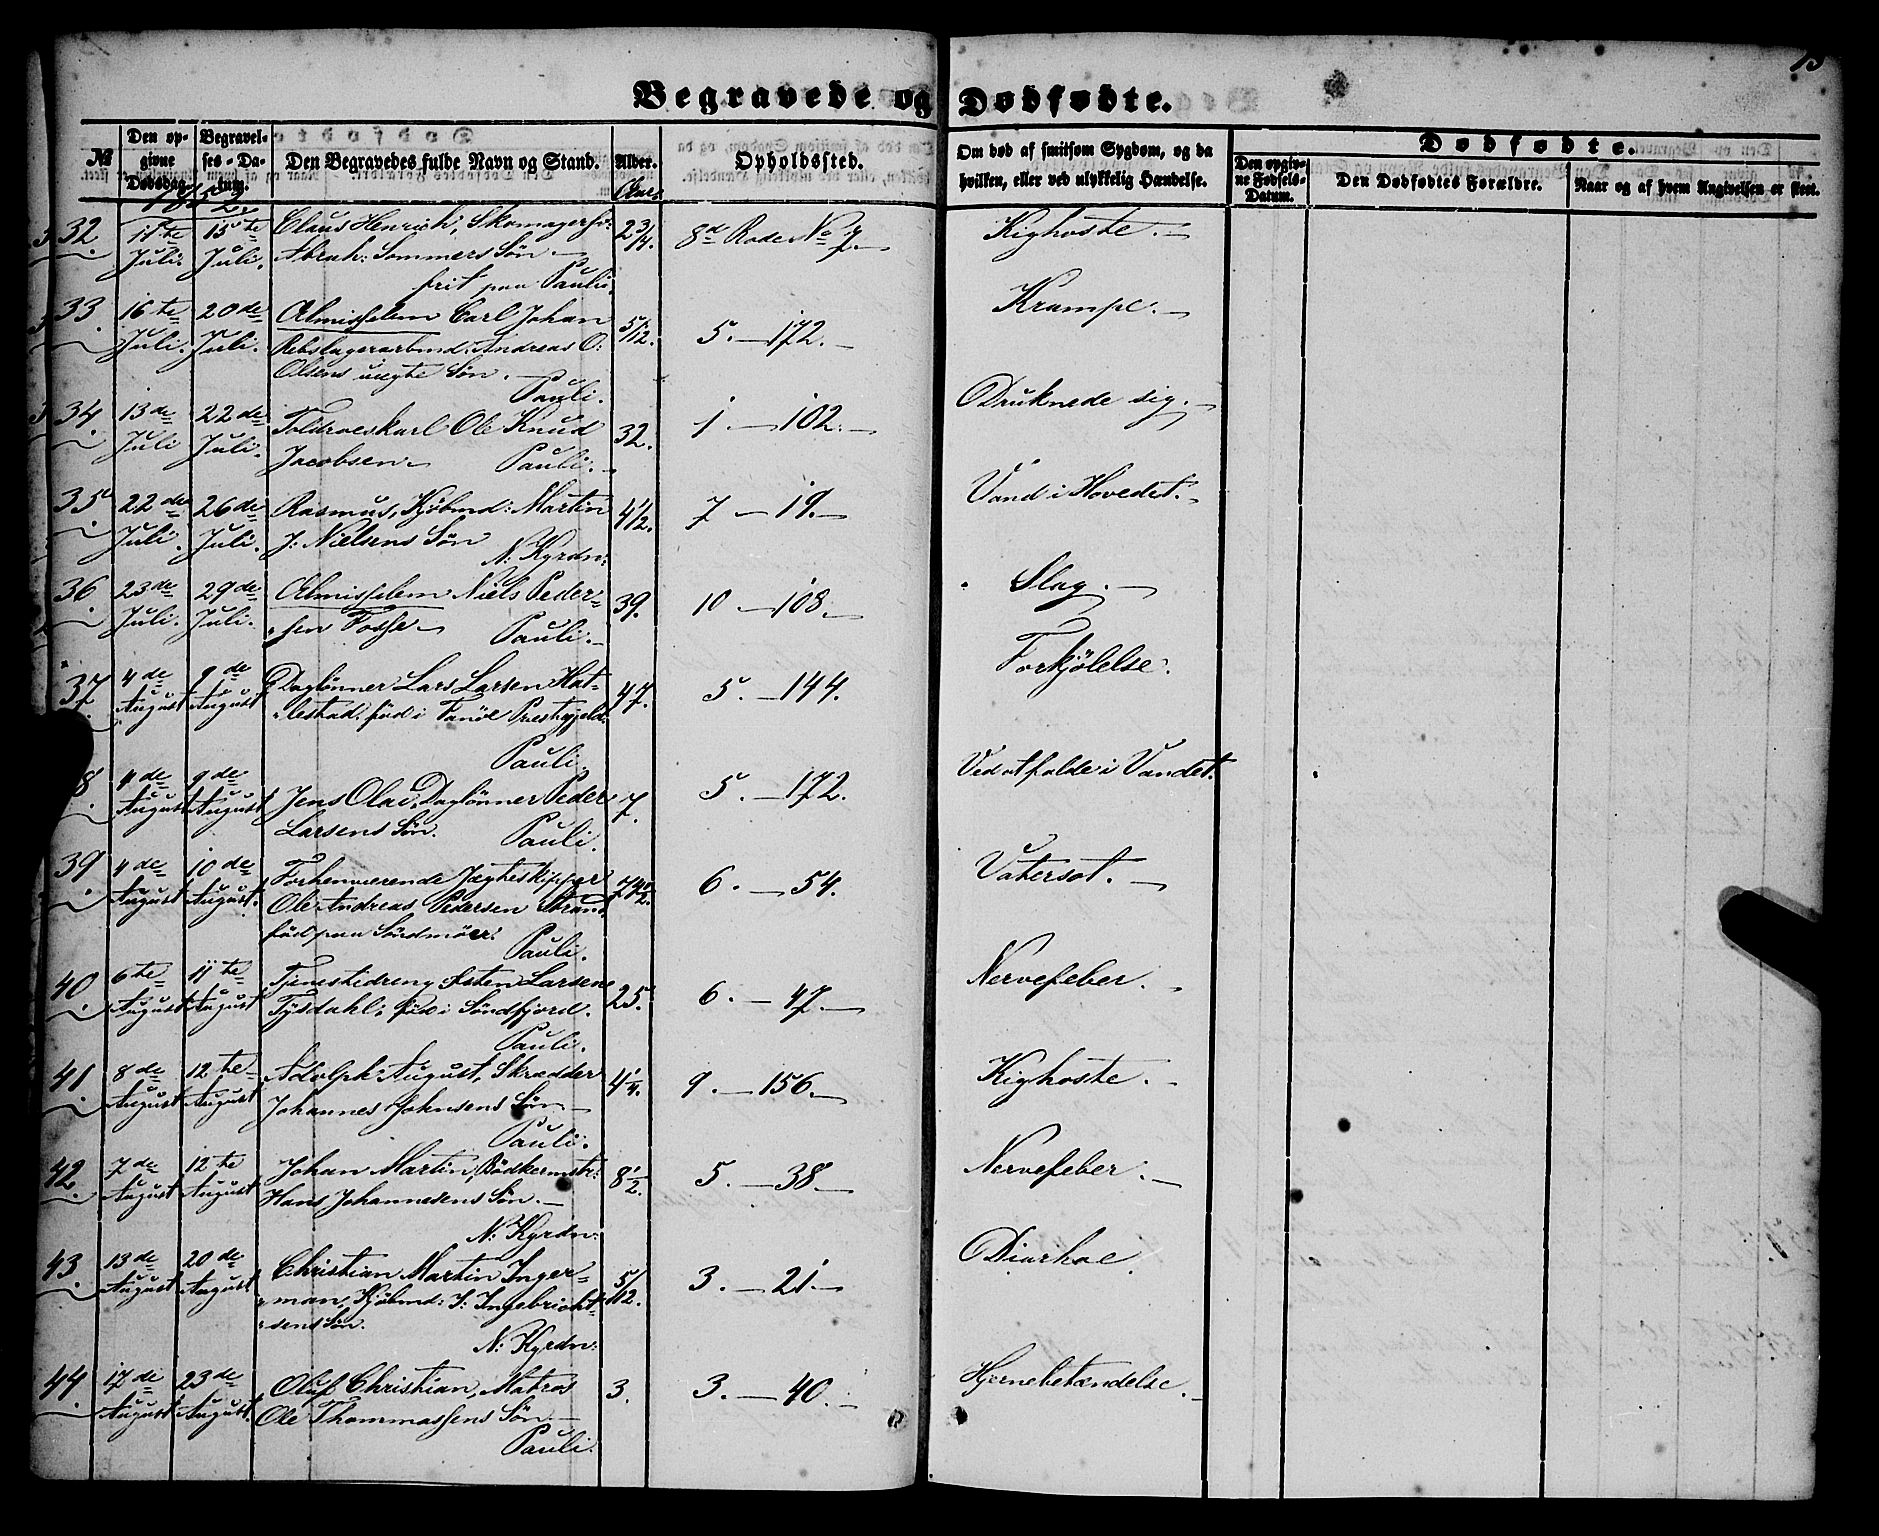 13
Begravede og Dødfødte.
№
Den opgivne Dødsdag.
Begravelses-Datum.
Den Begravedes fulde Navn og Stand.
Alder.
Opholdssted.
Om død af smitsom Sygdom, og da hvilken, eller ved ulykkelig Hændelse.
Dødfødte.
Den opgivne Fødsels-Datum.
Den Dødfødtes Forældre.
Naar og af hvem Angivelsen er skeet.
1852. Aar.
32. 11te Juli. 15te Juli. Claus Henrich, Skomagersv: 2 3/4. 8de Rode No 7. Kighoste.
Abrah: Sommers Søn.
frit paa Pauli.
33. 16te Juli. 20de Juli. Almisselem Carl Johan 5/12. 5. — 172. Krampe.
Rebslagerarbmd: Andreas O:
Olsens uægte Søn.
Pauli.
34. 13de Juli 22de Juli. Toldroeskarl Ole Knud 32. 1. — 102. Druknede sig.
Jacobsen. Pauli.
35. 22de Juli. 26de Juli. Rasmus, Kjøbmd: Martin 4 1/2. 7 — 19. Vand i Hovedet.
J: Nielsens Søn
N: Kyrdn:
36. 23de Juli. 29de Juli. Almisselem Niels Peder- 39. 10 — 108. Slag.
sen Fosse. Pauli.
37. 4de August 9de August Daglönner Lars Larsen Hat- 47. 5. — 144. Forkjölelse.
lestad, fød i Fanöe Prestegjeld.
Pauli.
8. 4de August 9de August Jens Olai, Daglönner Peder 7. 5. — 172. Ved at falde i Vandet.
Larsens Søn. Pauli.
39. 4de August 10de August. Forhenværende Jægteskipper 74 1/2. 6. — 54. Vatersot.
Ole Andreas Pedersen Strand,
fød paa Söndmöer. Pauli.
40. 6te August 11te August Tjenestedreng Østen Larsen 25. 6. — 47. Nervefeber.
Tysdahl, fød i Söndfjord.
Pauli.
41. 8de August 12te August Adolph August, Skrædder 4 1/4. 9. — 156. Kighoste.
Johannes Johnsens Søn
Pauli.
42. 7de August 12te August Johan Martin, Bödkermstr: 8 1/2. 5. — 38. Nervefeber.
Hans Johannesens Søn.
N: Kyrdn:
43. 13de August 20de August Christian Martin Inger- 5/12. 3. — 21. Diarhoe.
man, Kjøbmd: J: Ingebrigt-
sens Søn.
N: Kyrdn:
44. 17de August 23de August. Oluf Christian, Matros 3. 3. — 40. Hjernebetændelse.
Ole Thommassens Søn
Pauli.